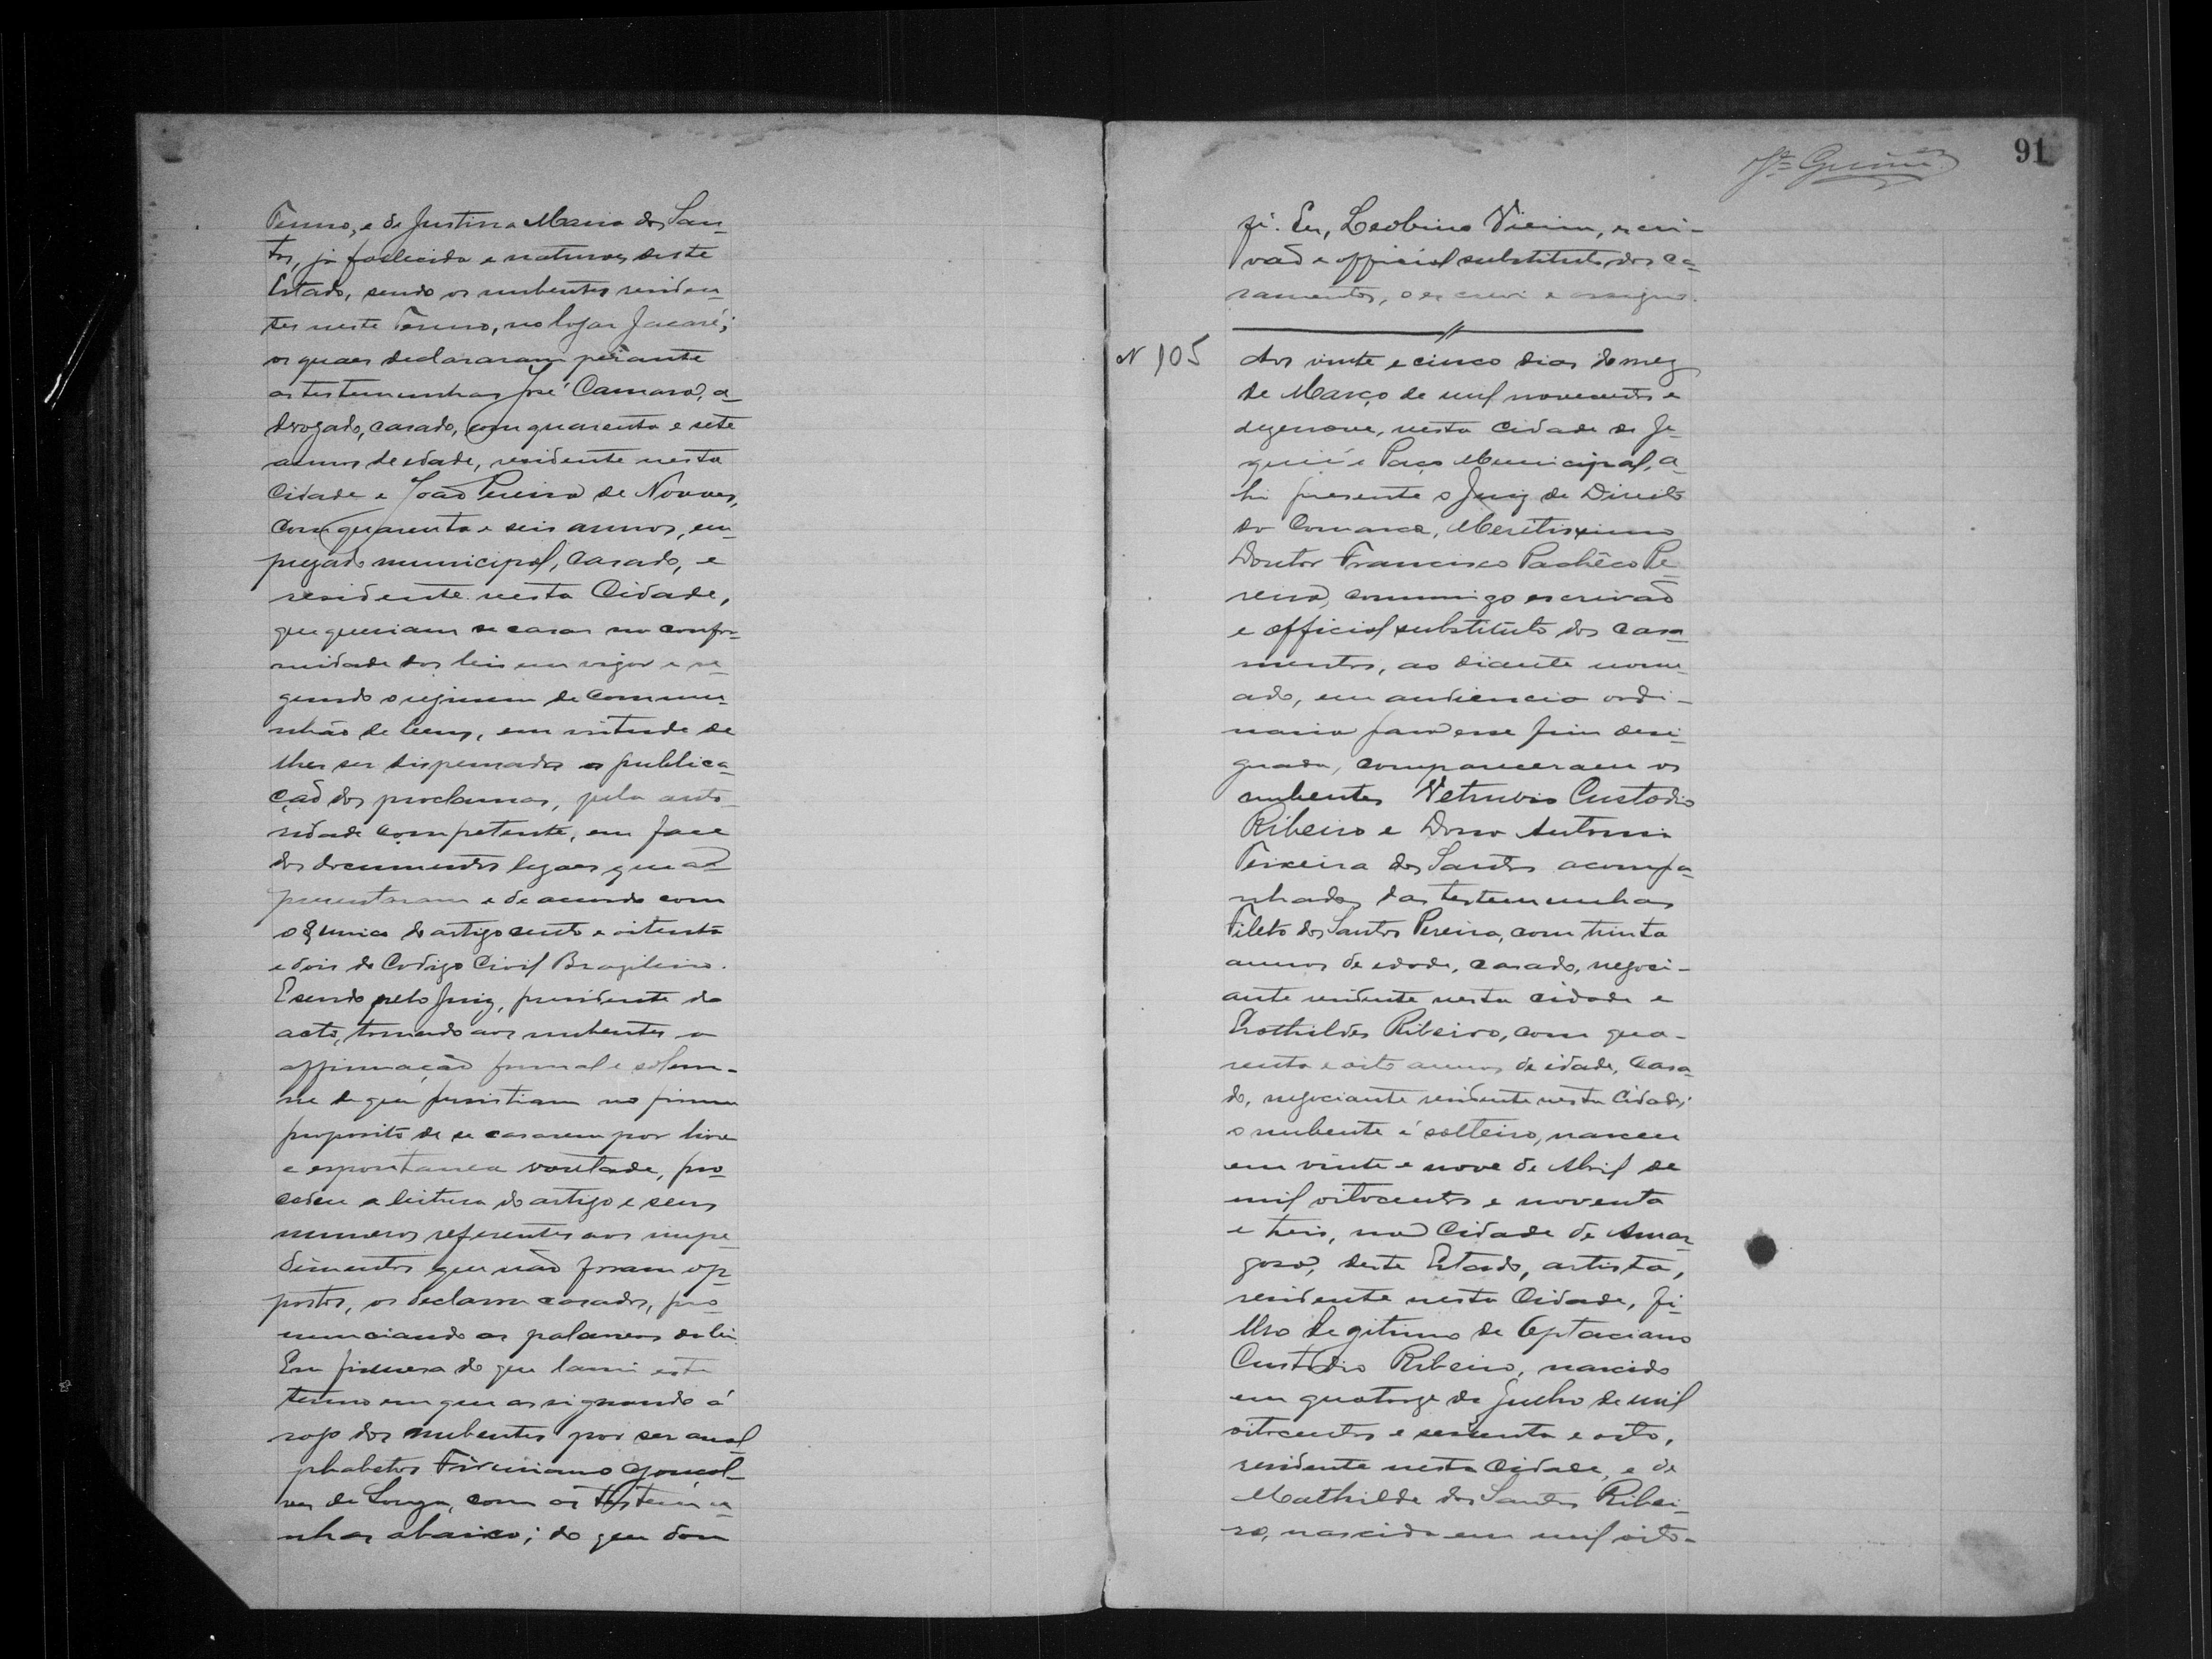 Termo, e de Justina Maria dos San-
tos, já fallecida e naturaes deste
Estado, sendo os nubentes residen-
tes neste Termo, no logar Jacaré;
os quaes declararam perante
as testemunhas José Camara, a-
dvogado, casado, com quarenta e sete
annos de edade, residente nesta
Cidade e João Pereira de Novaes,
com quarenta e seis annos, em-
pregado municipal, casado, e
residente nesta Cidade,
que queriam se casar na confor-
midade das leis em vigor e se-
gundo o regimen de commu-
nhão de bens, em virtude de
lhes ser dispensada a publica-
ção dos proclamas, pela auto-
ridade competente, em face
dos documentos legaes que a-
presentaram e de accordo com
o § unico do artigo cento e oitenta
e dois do Codigo Civil Brazileiro.
E sendo pelo Juiz, presidente do
acto, tomado aos nubentes a
affirmação formal e solem-
ne de que persistiam no firme
proposito de se casarem por livre
e espontanea vontade, pro-
cedeu a leitura do artigo e seus
numeros referentes aos impe-
dimentos que não foram op-
postos, os declarou casados, pro-
nunciando as palavras da lei.
Em firmesa do que lavrei este
termo em que assignando á
rogo dos nubentes por ser anal-
phabetos Firminiano Gonçal-
ves de Souza, com as testemu-
nhas abaixo; do que dou
91
fé. Eu, Leobino Vieira, escri-
vão e official substituto dos ca-
samentos, o escrevi e assigno.
N 105
Aos vinte e cinco dias do mez
de Março de mil novecentos e
dezenove, nesta Cidade de Je-
quié e Paço Municipal, a-
hi presente o Juiz de Direito
da Comarca, Meritissimo
Doutor Francisco Pachêco Pe-
reira, commigo escrivão
e official substituto dos casa-
mentos, ao diante nome-
ado, em audiencia ordi-
naria para esse fim desi-
gnada, compareceram os
nubentes Vetruvio Custodio
Ribeiro e Dona Antonia
Teixeira dos Santos acompa-
nhados das testemunhas
Fileto dos Santos Pereira, com trinta
annos de edade, casado, negoci-
ante residente nesta cidade e
Erothildes Ribeiro, com qua-
renta e oito annos de idade, casa-
do, negociante residente nesta Cidade;
o nubente é solteiro, nasceu
em vinte e nove de Abril de
mil oitocentos e noventa
e treis, na Cidade de Amar-
gosa, deste Estado, artista,
residente nesta Cidade, fi-
lho legitimo de Optaciano
Custodio Ribeiro, nascido
em quatorze de Julho de mil
oitocentos e sessenta e oito,
residente nesta Cidade, e de
Mathilde dos Santos Ribei-
ro, nascida em mil oito-